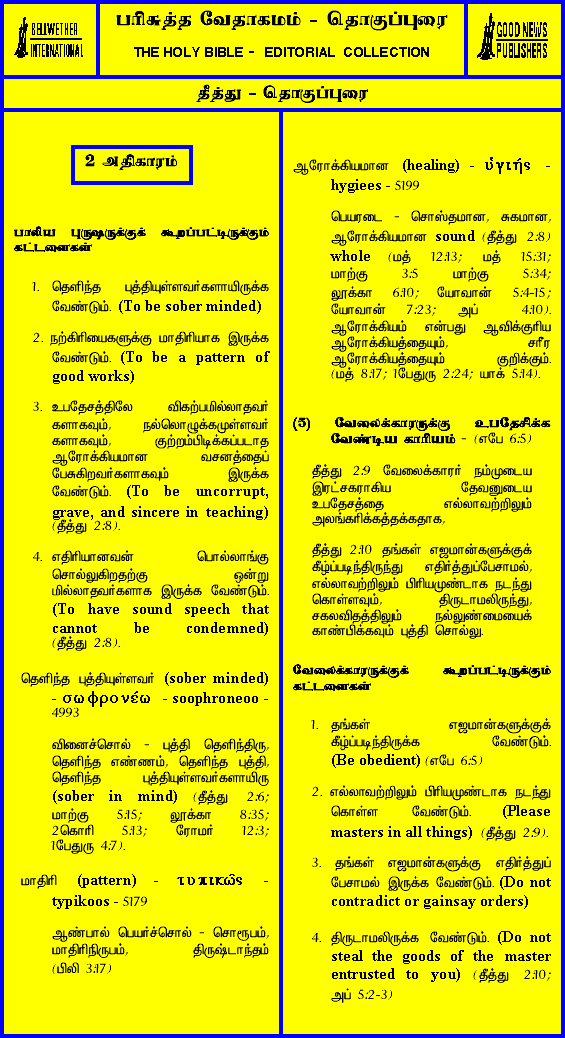 BELLWETHER
INTERNATIONAL
பரிசுத்த வேதாகமம் - தொகுப்புரை
THE HOLY BIBLE - EDITORIAL COLLECTION
GOOD NEWS
PUBLISHERS
தீத்து - தொகுப்புரை
2 அதிகாரம்
பாலிய புருஷருக்குக் கூறப்பட்டிருக்கும்
கட்டளைகள்
1. தெளிந்த புத்தியுள்ளவர்களாயிருக்க
வேண்டும். (To be sober minded)
2. நற்கிரியைகளுக்கு மாதிரியாக இருக்க
வேண்டும். (To be a pattern of
good works)
3. உபதேசத்திலே விகற்பமில்லாதவர்
களாகவும், நல்லொழுக்கமுள்ளவர்
களாகவும், குற்றம்பிடிக்கப்படாத
ஆரோக்கியமான வசனத்தைப்
பேசுகிறவர்களாகவும் இருக்க
வேண்டும். (To be uncorrupt,
grave, and sincere in teaching)
(தீத்து 2:8).
4. எதிரியானவன் பொல்லாங்கு
சொல்லுகிறதற்கு ஒன்று
மில்லாதவர்களாக இருக்க வேண்டும்.
(To have sound speech that
cannot be condemned)
(தீத்து 2:8).
தெளிந்த புத்தியுள்ளவர் (sober minded)
- σωφρονέω - soophroneoo -
4993
வினைச்சொல் - புத்தி தெளிந்திரு,
தெளிந்த எண்ணம், தெளிந்த புத்தி,
தெளிந்த புத்தியுள்ளவர்களாயிரு
(sober in mind) (தீத்து 2:6;
மாற்கு 5:15; லூக்கா 8:35;
2கொரி 5:13; ரோமர் 12:3;
1பேதுரு 4:7).
மாதிரி (pattern) - τυπικῶς -
typikoos - 5179
ஆண்பால் பெயர்ச்சொல் - சொரூபம்,
மாதிரிநிருபம், திருஷ்டாந்தம்
(பிலி 3:17)
ஆரோக்கியமான (healing) - ὑγιής -
hygiees - 5199
பெயரடை - சொஸ்தமான, சுகமான,
ஆரோக்கியமான sound (தீத்து 2:8)
whole (மத் 12:13; மத் 15:31;
மாற்கு 3:5 மாற்கு 5:34;
லூக்கா 6:10; யோவான் 5:4-15;
யோவான் 7:23; அப் 4:10).
ஆரோக்கியம் என்பது ஆவிக்குரிய
ஆரோக்கியத்தையும், சரீர
ஆரோக்கியத்தையும் குறிக்கும்.
(மத் 8:17; 1பேதுரு 2:24; யாக் 5:14).
(5) வேலைக்காரருக்கு உபதேசிக்க
வேண்டிய காரியம் - (எபே 6:5)
தீத்து 2:9 வேலைக்காரர் நம்முடைய
இரட்சகராகிய தேவனுடைய
உபதேசத்தை எல்லாவற்றிலும்
அலங்கரிக்கத்தக்கதாக,
தீத்து 2:10 தங்கள் எஜமான்களுக்குக்
கீழ்ப்படிந்திருந்து எதிர்த்துப்பேசாமல்,
எல்லாவற்றிலும் பிரியமுண்டாக நடந்து
கொள்ளவும், திருடாமலிருந்து,
சகலவிதத்திலும் நல்லுண்மையைக்
காண்பிக்கவும் புத்தி சொல்லு.
வேலைக்காரருக்குக் கூறப்பட்டிருக்கும்
கட்டளைகள்
1. தங்கள் எஜமான்களுக்குக்
கீழ்ப்படிந்திருக்க வேண்டும்.
(Be obedient) (எபே 6:5)
2. எல்லாவற்றிலும் பிரியமுண்டாக நடந்து
கொள்ள வேண்டும். (Please
masters in all things) (தீத்து 2:9).
3. தங்கள் எஜமான்களுக்கு எதிர்த்துப்
பேசாமல் இருக்க வேண்டும். (Do not
contradict or gainsay orders)
4. திருடாமலிருக்க வேண்டும். (Do not
steal the goods of the master
entrusted to you) (தீத்து 2:10;
அப் 5:2-3)